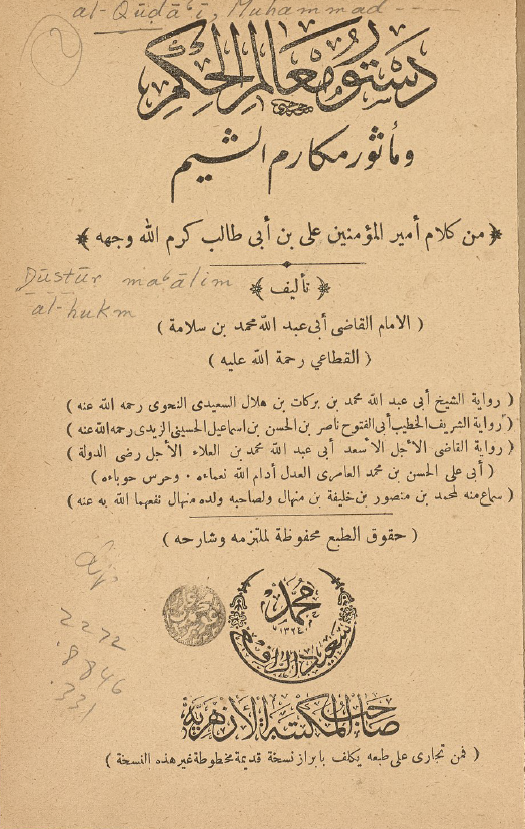 al-Qūḍāʿī, Muhammad
2
دستور معالم الحكم
ومأثور مكارم الشيم
﴿ من كلام أمير المؤمنين على بن أبى طالب كرم الله وجهه ﴾
Dūstūr maʿālim
al-hukm
﴿ تأليف ﴾
( الامام القاضى أبى عبد الله محمد بن سلامة )
( القطاعي رحمة الله عليه )
( رواية الشيخ أبى عبد الله محمد بن بركات بن هلال السعيدى النحوى رحمه الله عنه )
( رواية الشريف الخطيب أبى الفتوح ناصر بن الحسن بن اسماعيل الحسينى الزيدى رحمه الله عنه )
( رواية القاضى الأجل الأسعد أبى عبد الله محمد بن العلاء الأجل رضى الدولة )
( أبى على الحسن بن محمد العامرى العدل أدام الله نعماءه . وحرس حوباءه )
( سماع منه لمحمد بن منصور بن خليفة بن منهال ولصاحبه ولده منهال نفعهما الله به عنه )
( حقوق الطبع محفوظة لملتزمه وشارحه )
محمد
١٣٢٤
سعيد الرافعى
2272
.8846
.331
صاحب المكتبة الأزهرية
( فمن تجارى على طبعه يكلف بابراز نسخة قديمة مخطوطة غير هذه النسخة )